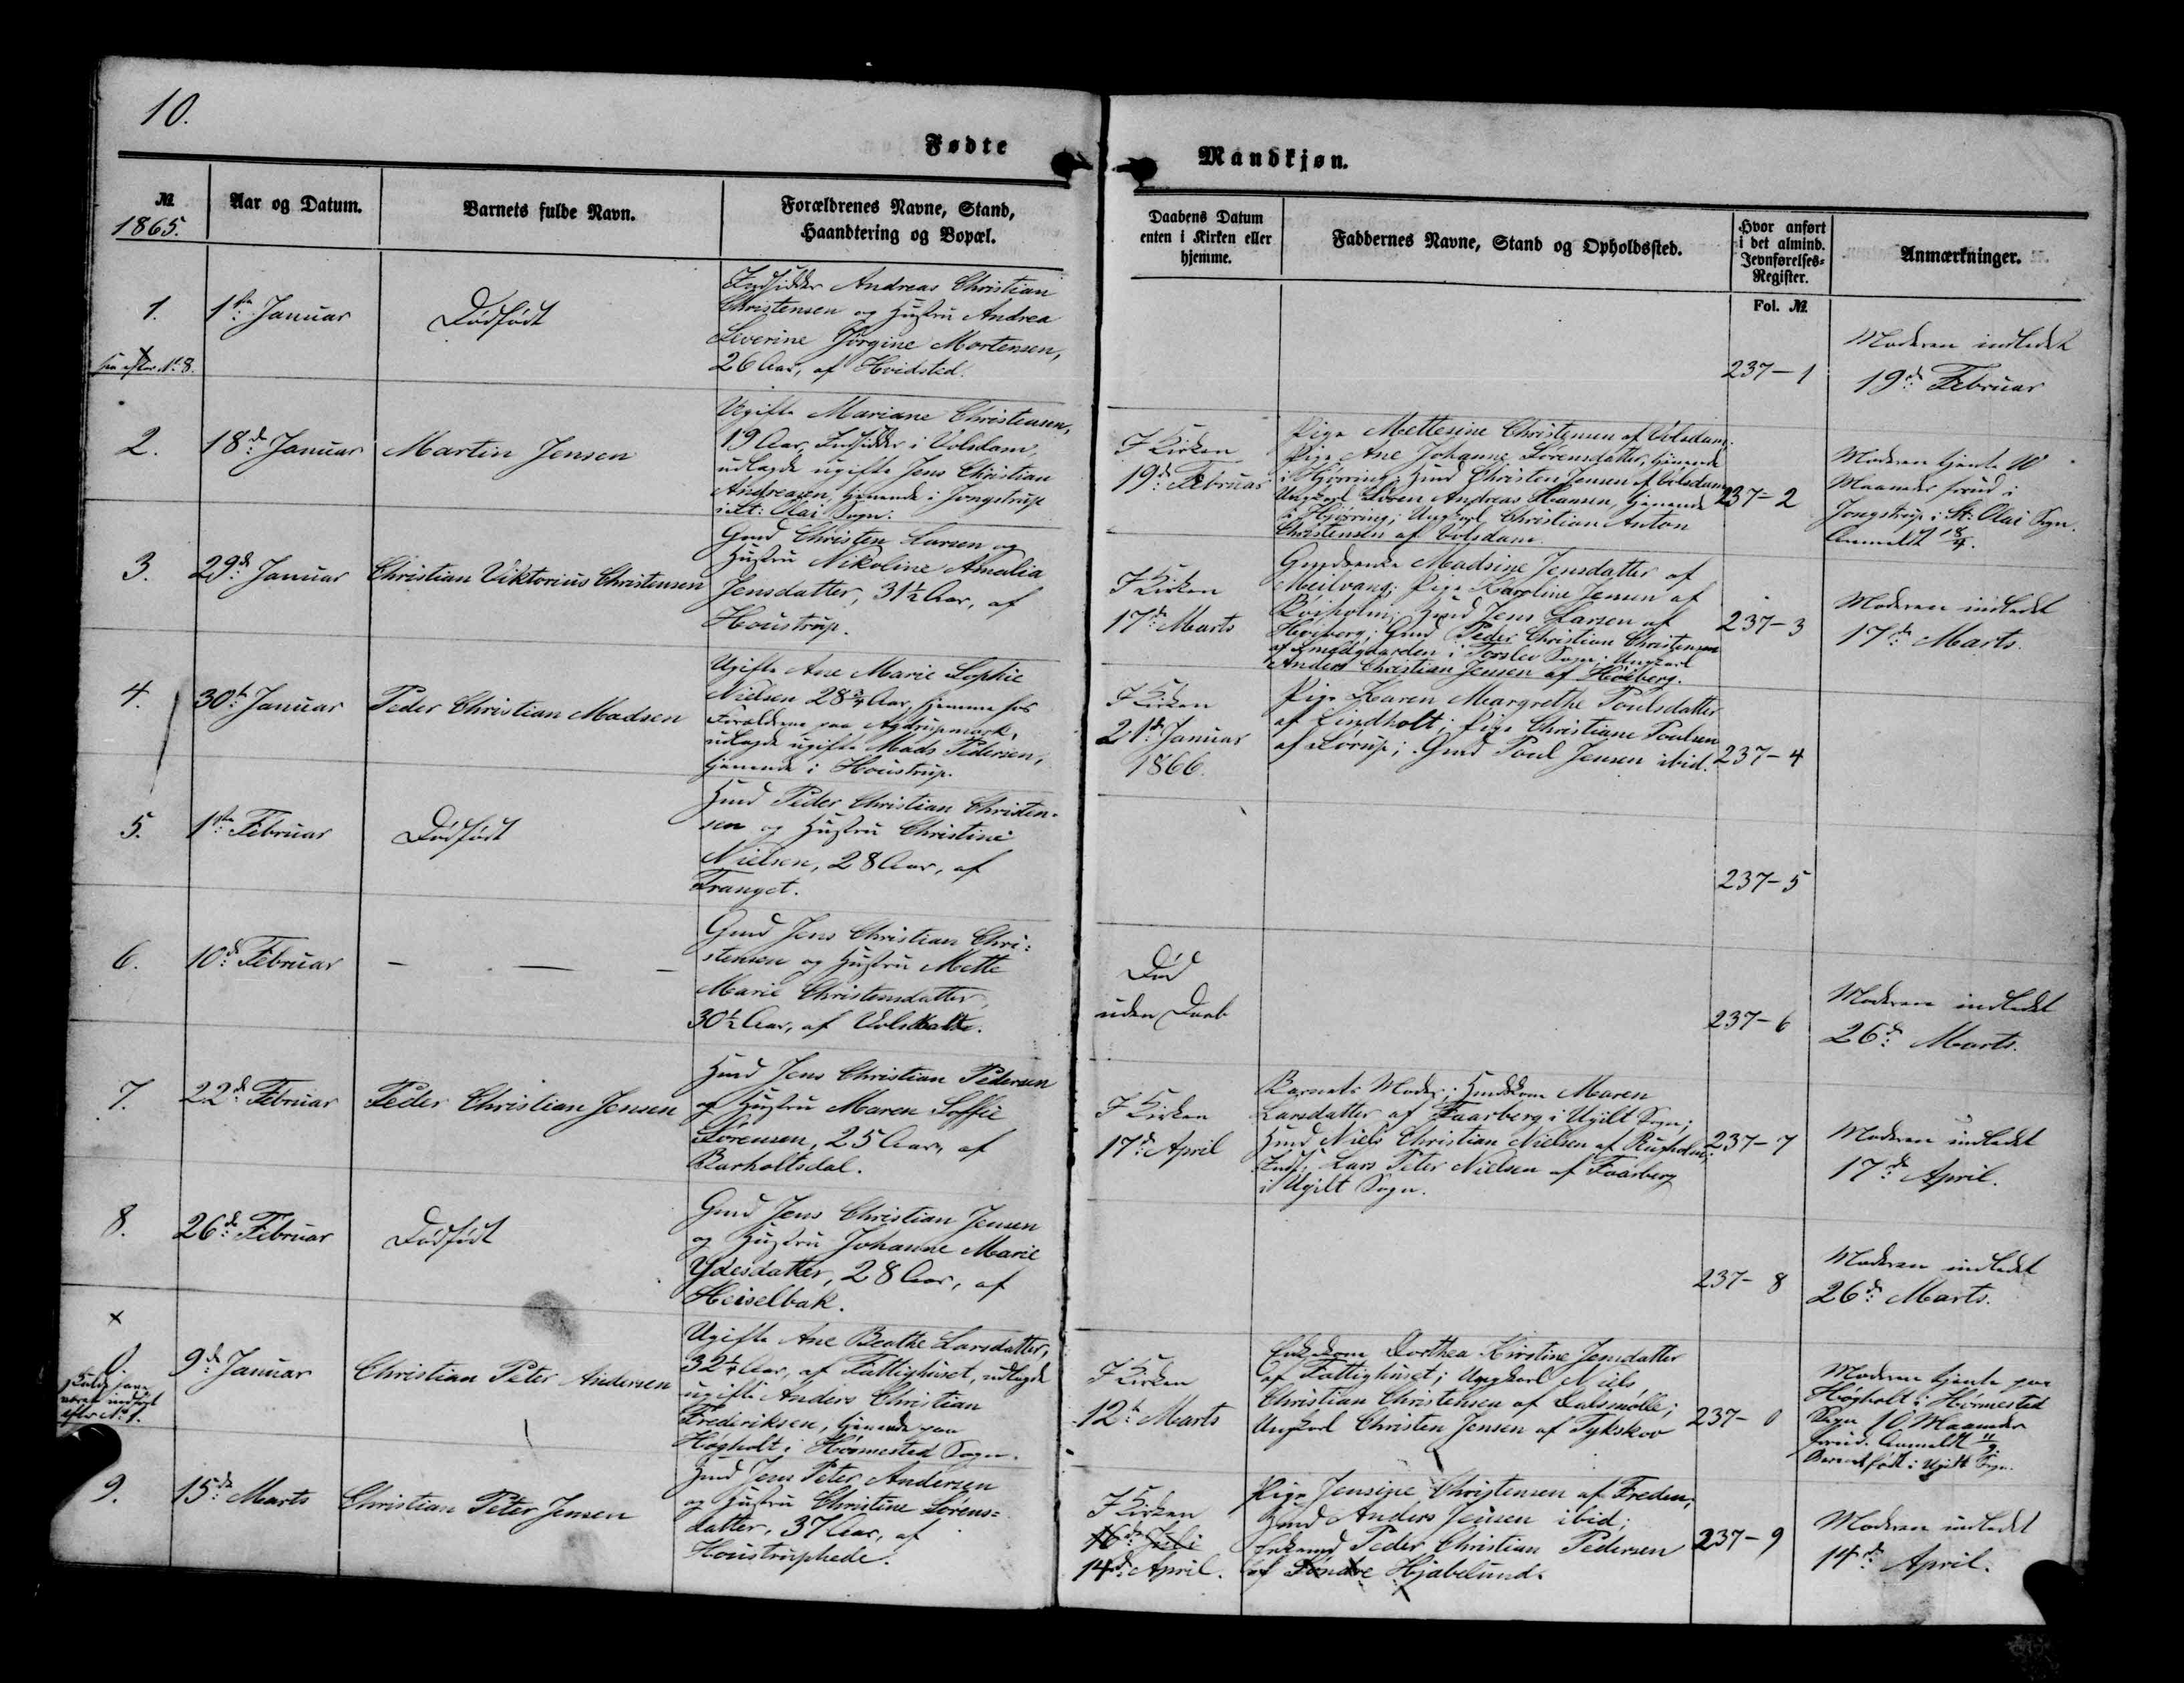 10.
Fødte
Mandkjøn.
№
1865.
Aar og Datum.
Barnets fulde Navn.
Forældrenes Navne, Stand,
Haandtering og Bopæl.
Daabens Datum
enten i Kirken eller
hjemme.
Faddernes Navne, Stand og Opholdssted.
Hvor anført
i det almind.
Jevnførelses-
Register.
Fol. №
Anmærkninger.
1.
see efter № 8.
1ste Januar
Dødfødt
Indsidder Andreas Christian
Christensen og Hustru Andrea
Severine Jörgine Mortensen,
26 Aar, af Hvidsted.
237-1
Moderen indledet
19de Februar
2.
18de Januar
Martin Jensen
Ugifte Mariane Christensen,
19 Aar, Indsidder i Volsdam,
udlagde ugifte Jens Christian
Andreasen, tjenende i Jongstrup
i St: Olai Sogn.
I Kirken
19de Februar
Pige Mettesine Christensen af Volsdam;
Pige Ane Johanne Sörensdatter, tjenende
i Hjörring; Hmd Christen Jensen af Volsdam
Ungkarl Sören Andreas Hansen, tjenende
i Hjörring; Ungkarl Christian Anton
Christensen af Volsdam.
237-2
Moderen tjente 10
Maaneder forud i
Jongstrup i St: Olai Sogn.
Anmeldt 18/4.
3.
29de Januar
Christian Viktorius Christensen
Gmd Christen Larsen og
Hustru Nikoline Amalia
Jensdatter, 31½ Aar, af
Houstrup.
I Kirken
17de Marts
Madsine Jensdatter af
Meilvang; Pige Karoline Jensen af
Böiholm; Hmd Jens Larsen af
Höiberg; Gmd Peder Christian Christensen
af Smedgaarden i Torslev Sogn; Ungkarl
Anders Christian Jensen af Höiberg.
237-3
Moderen indledet
17de Marts.
4.
30te Januar
Peder Christian Madsen
Ugifte Ane Marie Sophie
Nielsen 28¾ Aar, hjemme hos
Forældrene paa Agdrupmark,
udlagde ugifte Mads Pedersen,
tjenende i Houstrup.
I Kirken
21de Januar
1866.
Pige Karen Margrethe Poulsdatter
af Lindholt; Pige Christiane Poulsen
af Sörup; Gmd Poul Jensen ibid.
237-4
5.
1ste Februar
Dødfødt
Hmd Peder Christian Christen-
sen og Hustru Christine
Nielsen, 28 Aar, af
Tranget.
237-5
6.
10de Februar
— — —
Gmd Jens Christian Chri-
stensen og Hustru Mette
Marie Christensdatter,
30½ Aar, af
Død
uden Daab
237-6
Moderen indledet
26de Marts.
7.
22de Februar
Peder Christian Jensen
Hmd Jens Christian Pedersen
og Hustru Maren Soffie
Sörensen, 25 Aar, af
Barholtsdal.
I Kirken
17de April
Barnets Moder; Hmdkone Maren
Larsdatter af Faarberg i Ugilt Sogn;
Hmd Niels Christian Nielsen af Rugholm;
Inds: Lars Peter Nielsen af Faarberg
i Ugilt Sogn.
237-7
Moderen indledet
17de April.
8.
26de Februar
Dødfødt
Gmd Jens Christian Jensen
og Hustru Johanne Marie
Ydesdatter, 28 Aar, af
Heiselbak.
237-8
Moderen indledet
26de Marts.
x
0.
skulde have
været indført
efter № 1.
9de Januar
Christian Peter Andersen
Ugifte Ane Beathe Larsdatter,
32¼ Aar, af Fattighuset, udlagde
ugifte Anders Christian
Frederiksen, tjenende paa
Høgholt i Hörmested Sogn.
I Kirken
12te Marts
Dorthea Kirstine Jensdatter
af Fattighuset; Ungkarl Niels
Christian Christensen af Dalsmölle;
Ungkarl Christen Jensen af Tykskov
237-0
Moderen tjente paa
Høgholt i Hörmested
Sogn 10 Maaneder
forud. Anmeldt 11/9.
Barnet født i Ugilt Sogn.
9.
15de Marts
Christian Peter Jensen
Hmd Jens Peter Andersen
og Hustru Christine Sörens-
datter, 37 Aar, af
Houstruphede.
I Kirken
16de Juli
14de April.
Pige Jensine Christensen af Freden;
Hmd Anders Jensen ibid;
Enkemd Peder Christian Pedersen
af Söndre Hjabelund.
237-9
Moderen indledet
14de April.